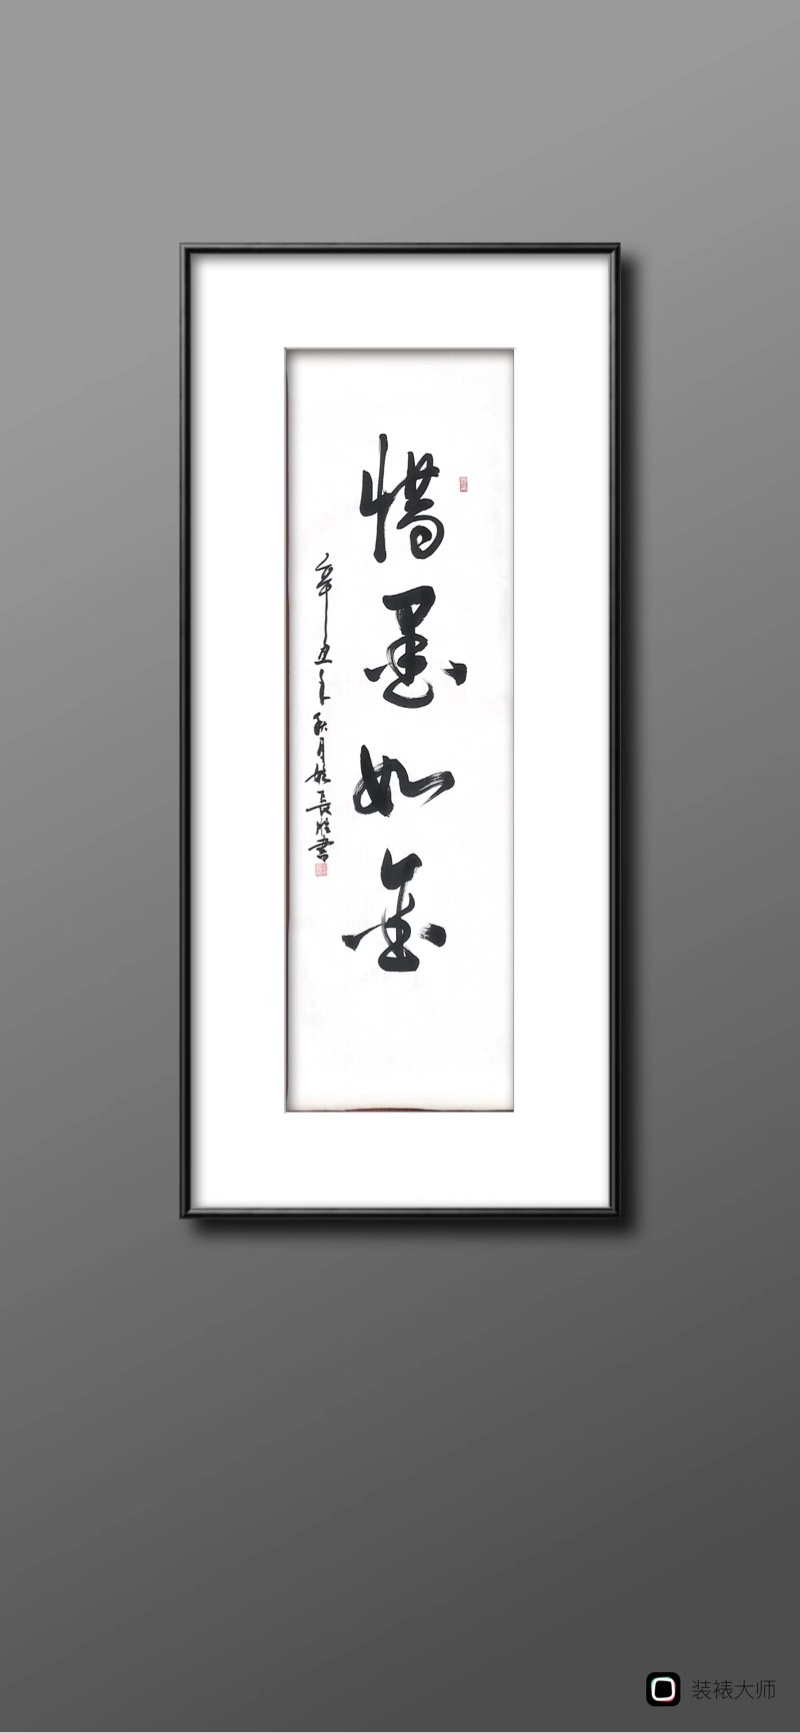 惜墨如金
辛丑年秋月姚長勝書
装裱大师